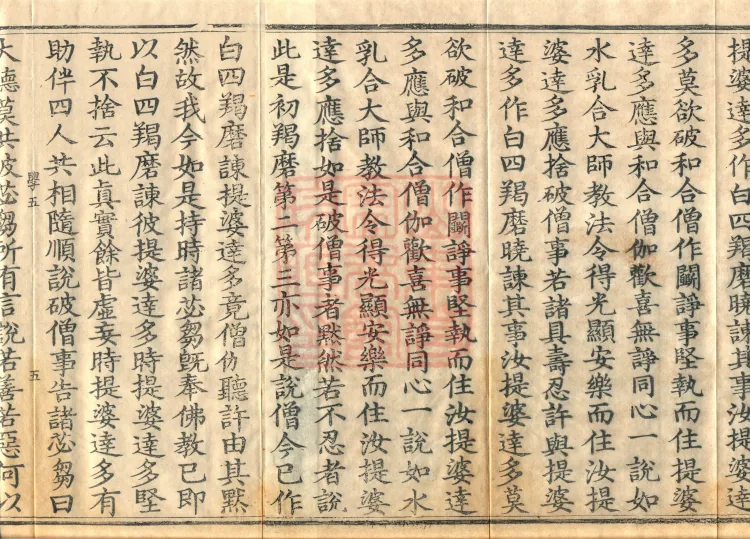 提婆達多作白四羯磨曉諫其事汝提婆達
多莫欲破和合僧作鬭諍事堅執而住汝提婆
達多應與和合僧伽歡喜無諍同心一說如
水乳合大師教法令得光顯安樂而住汝提
婆達多應捨破僧事若諸具壽忍許與提婆
達多作白四羯磨曉諫其事汝提婆達多莫
欲破和合僧作鬭諍事堅執而住汝提婆達
多應與和合僧伽歡喜無諍同心一說如水
乳合大師教法令得光顯安樂而住汝提婆
達多應捨如是破僧事者默然若不忍者說
此是初羯磨第二第三亦如是說僧今已作
白四羯磨諫提婆達多竟僧伽聽許由其默
然故我今如是持時諸苾芻旣奉佛教已即
以白四羯磨諫彼提婆達多時提婆達多堅
執不捨云此真實餘皆虛妄時提婆達多有
助伴四人共相隨順說破僧事告諸苾芻曰
學五 五
大德莫共彼苾芻所有言說若善若惡何以